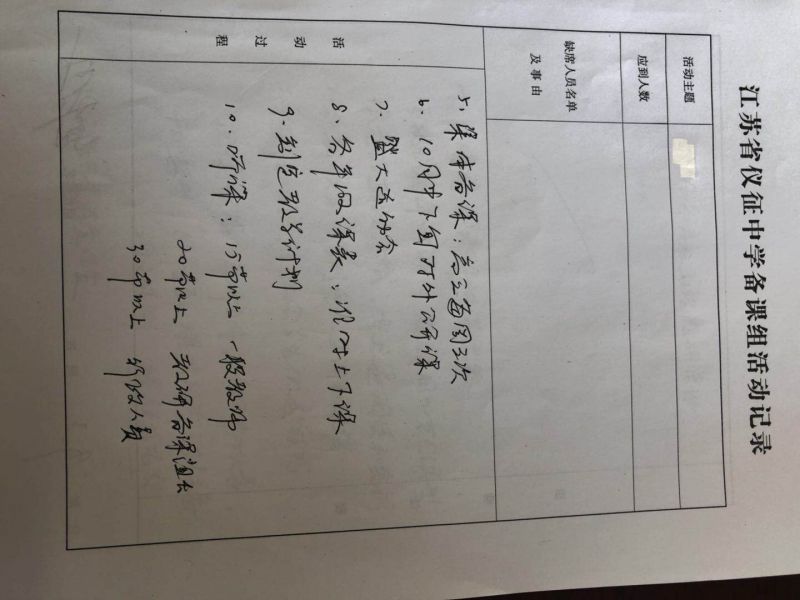 江苏省仪征中学备课组活动记录
活动主题
应到人数
缺席人员名单
及事由
活动过程
5、集体备课：高三每周三次
6、10月中下旬对外公开课
7、
8、各年级课表，准时上下课
9、制定教学计划
10、听课：15节以上 一般教师
20节以上 教研备课组长
30节以上 行政人员